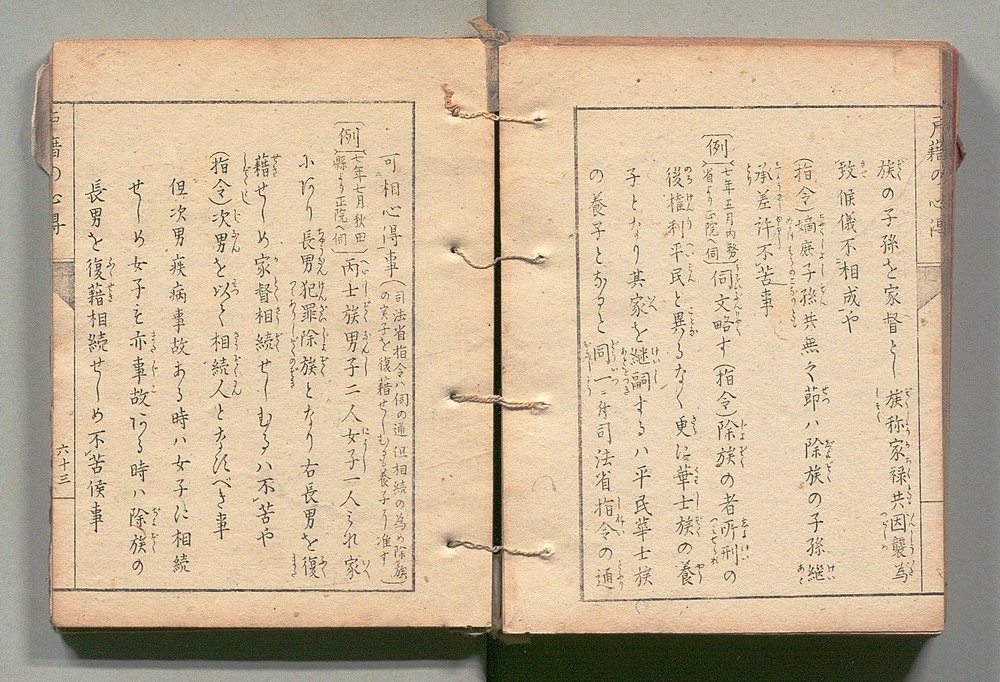 戸籍の心得
族の子孫を家督とし族称家禄共因襲為
致候儀不相成や
(指令)嫡庶子孫共無之節ハ除族の子孫継
承差許不苦事
(例)(七年五月内務省より正院へ伺)伺文略す(指令)除族の者所刑の
後権利平民と異るなく更に華士族の養
子となり其家を継嗣するハ平民華士族
の養子となると同一ニ付司法省指令の通
可相心得事(司法省指令ハ伺の通但相続の為め除族の実子を復籍せしむるも養子に准す)
(例)(七年七月秋田縣より正院へ伺)丙士族男子二人女子一人これ家
にあり長男犯罪除族となり右長男を復
籍せしめ家督相続せしむるハ不苦や
(指令)次男を以て相続人となすべき事
但次男疾病事故ある時ハ女子に相続
せしめ女子も亦事故ある時ハ除族の
長男を復籍相続せしめ不苦候事
戸籍の心得
六十三